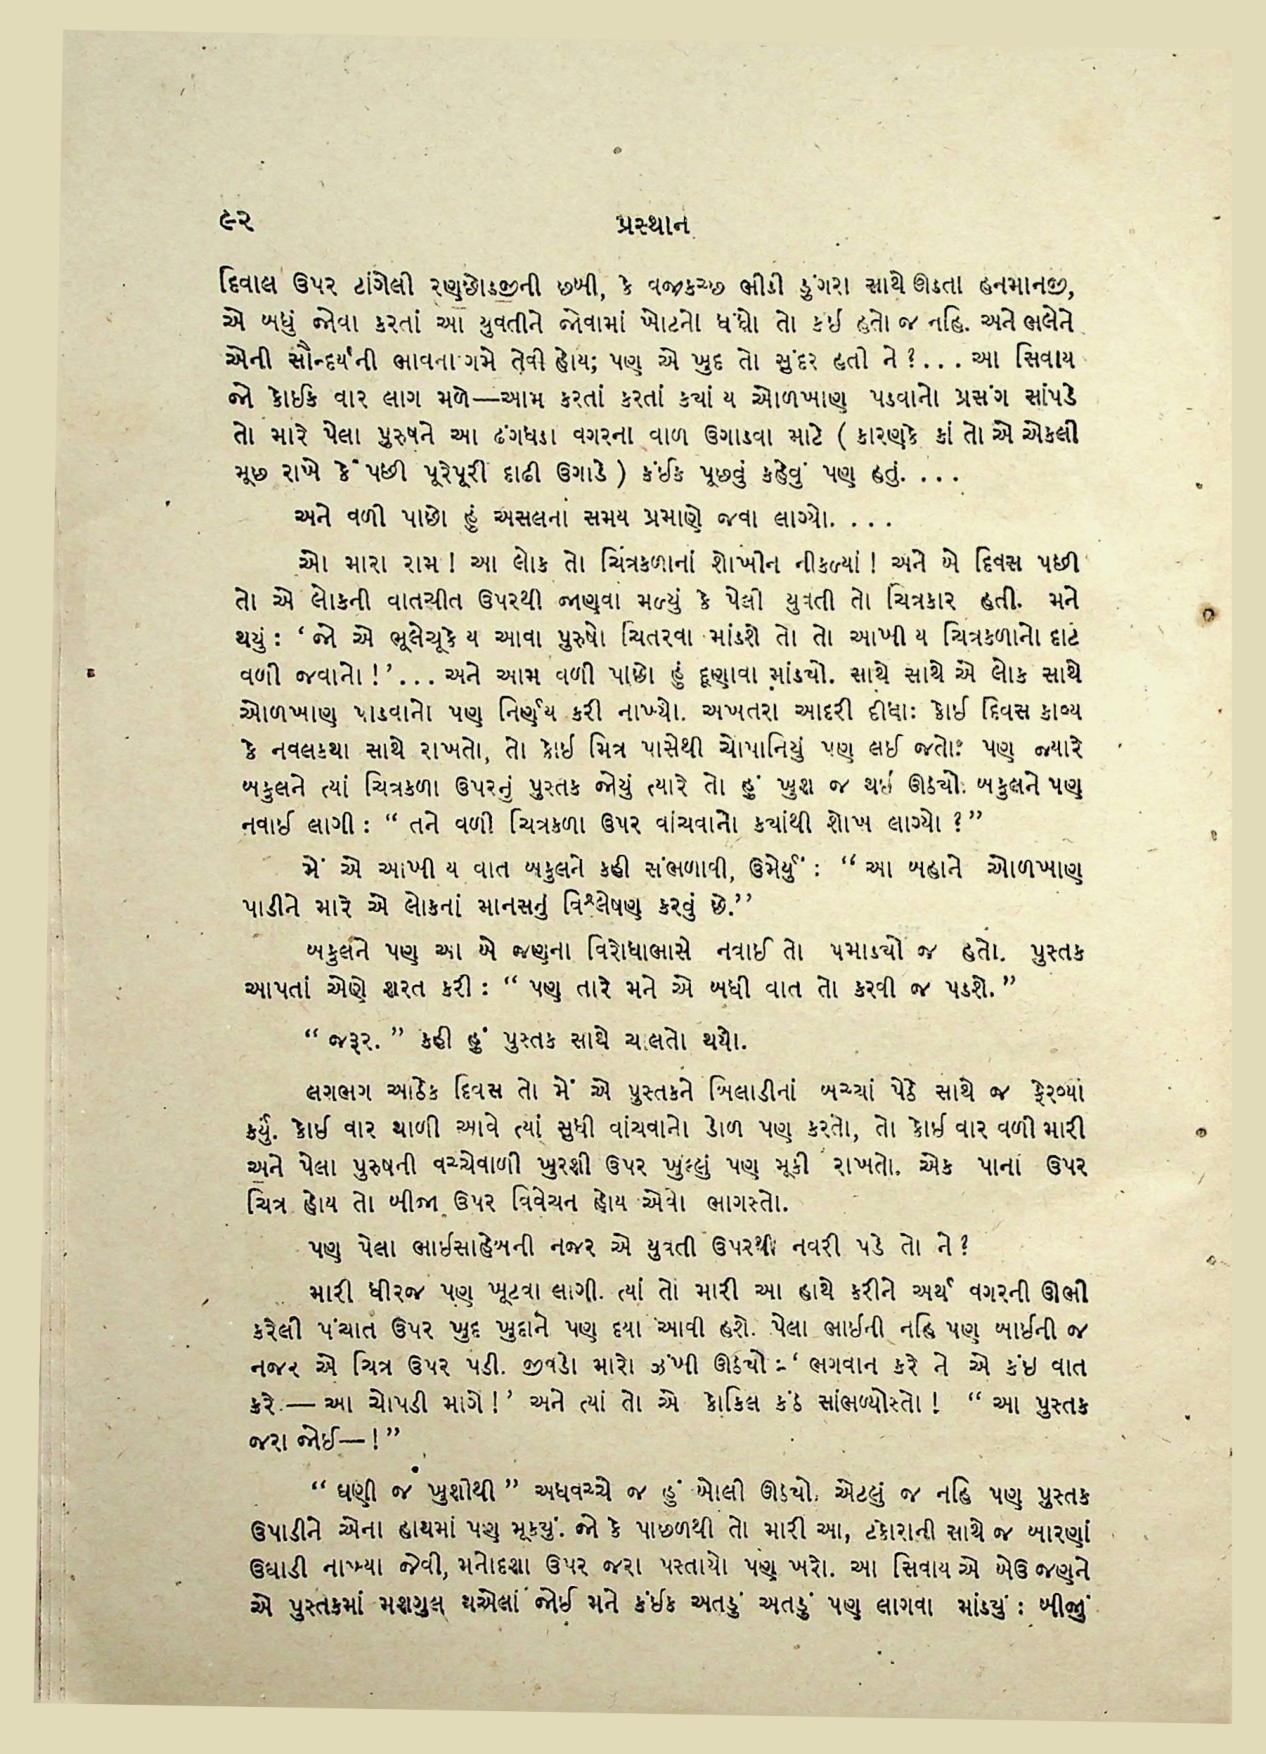 ૯૨
પ્રસ્થાન
દિવાલ ઉપર ટાંગેલી રણછોડજીની છબી, કે વજ્રકચ્છ ભીડી ડુંગરા સાથે ઊડતા હનમાનજી,
એ બધું જોવા કરતાં આ યુવતીને જોવામાં ખોટનો ધંધો તો કંઇ હતો જ નહિ. અને ભલેને
એની સૌન્દર્યની ભાવના ગમે તેવી હોય; પણ એ ખુદ તો સુંદર હતી ને ?... આ સિવાય
જો કોઈક વાર લાગ મળે—આમ કરતાં કરતાં ક્યાં ય ઓળખાણ પડવાનો પ્રસંગ સાંપડે
તો મારે પેલા પુરુષને આ ઢંગધડા વગરના વાળ ઉગાડવા માટે ( કારણકે કાં તો એ એકલી
મૂછ રાખે કે પછી પૂરેપૂરી દાઢી ઉગાડે ) કંઈક પૂછવું કહેવું પણ હતું. ...
અને વળી પાછો હું અસલના સમય પ્રમાણે જવા લાગ્યો. ...
ઓ મારા રામ ! આ લોક તો ચિત્રકળાનાં શોખીન નીકળ્યાં ! અને બે દિવસ પછી
તો એ લોકની વાતચીત ઉપરથી જાણવા મળ્યું કે પેલી યુવતી તો ચિત્રકાર હતી. મને
થયું : ‘ જો એ ભૂલેચૂકે ય આવા પુરુષો ચિતરવા માંડશે તો તો આખી ય ચિત્રકળાનો દાટ
વળી જવાનો !’ ... અને આમ વળી પાછો હું દૂણાવા માંડ્યો. સાથે સાથે એ લોક સાથે
ઓળખાણ પાડવાનો પણ નિર્ણય કરી નાખ્યો. અખતરા આદરી દીધાઃ કોઈ દિવસ કાવ્ય
કે નવલકથા સાથે રાખતો, તો કોઇ મિત્ર પાસેથી ચોપાનિયું પણ લઈ જતોઃ પણ જ્યારે
બકુલને ત્યાં ચિત્રકળા ઉપરનું પુસ્તક જોયું ત્યારે તો હું ખુશ જ થઇ ઊઠ્યો. બકુલને પણ
નવાઈ લાગી : “ તને વળી ચિત્રકળા ઉપર વાંચવાનો ક્યાંથી શોખ લાગ્યો ?”
મેં એ આખી ય વાત બકુલને કહી સંભળાવી, ઉમેર્યું : “ આ બહાને ઓળખાણ
પાડીને મારે એ લોકનાં માનસનું વિશ્લેષણ કરવું છે.”
બકુલને પણ આ બે જણના વિરોધાભાસે નવાઈ તો પમાડ્યો જ હતો. પુસ્તક
આપતાં એણે શરત કરી : “ પણ તારે મને એ બધી વાત તો કરવી જ પડશે.”
“ જરૂર. ” કહી હું પુસ્તક સાથે ચાલતો થયો.
લગભગ આઠેક દિવસ તો મેં એ પુસ્તકને બિલાડીનાં બચ્ચાં પેઠે સાથે જ ફેરવ્યાં
કર્યું. કોઈ વાર થાળી આવે ત્યાં સુધી વાંચવાનો ડોળ પણ કરતો, તો કોઈ વાર વળી મારી
અને પેલા પુરુષની વચ્ચેવાળી ખુરશી ઉપર ખુલ્લું પણ મૂકી રાખતો. એક પાના ઉપર
ચિત્ર હોય તો બીજા ઉપર વિવેચન હોય એવો ભાગસ્તો.
પણ પેલા ભાઈસાહેબની નજર એ યુવતી ઉપરથી નવરી પડે તો ને ?
મારી ધીરજ પણ ખૂટવા લાગી. ત્યાં તો મારી આ હાથે કરીને અર્થ વગરની ઊભી
કરેલી પંચાત ઉપર ખુદ ખુદાને પણ દયા આવી હશે. પેલા ભાઈની નહિ પણ બાઈની જ
નજર એ ચિત્ર ઉપર પડી. જીવડો મારો ઝંખી ઊઠ્યો : ‘ ભગવાન કરે ને એ કંઇ વાત
કરે — આ ચોપડી માગે !’ અને ત્યાં તો એ કોકિલ કંઠ સાંભળ્યોસ્તો ! “ આ પુસ્તક
જરા જોઈ—!”
“ ઘણી જ ખુશીથી ” અધવચ્ચે જ હું બોલી ઊઠ્યો. એટલું જ નહિ પણ પુસ્તક
ઉપાડીને એના હાથમાં પણ મૂક્યું. જો કે પાછળથી તો મારી આ, ટકોરાની સાથે જ બારણાં
ઉઘાડી નાખ્યા જેવી, મનોદશા ઉપર જરા પસ્તાયો પણ ખરો. આ સિવાય એ બેઉ જણને
એ પુસ્તકમાં મશગુલ થએલાં જોઈ મને કંઈક અતડું અતડું પણ લાગવા માંડ્યું : બીજું